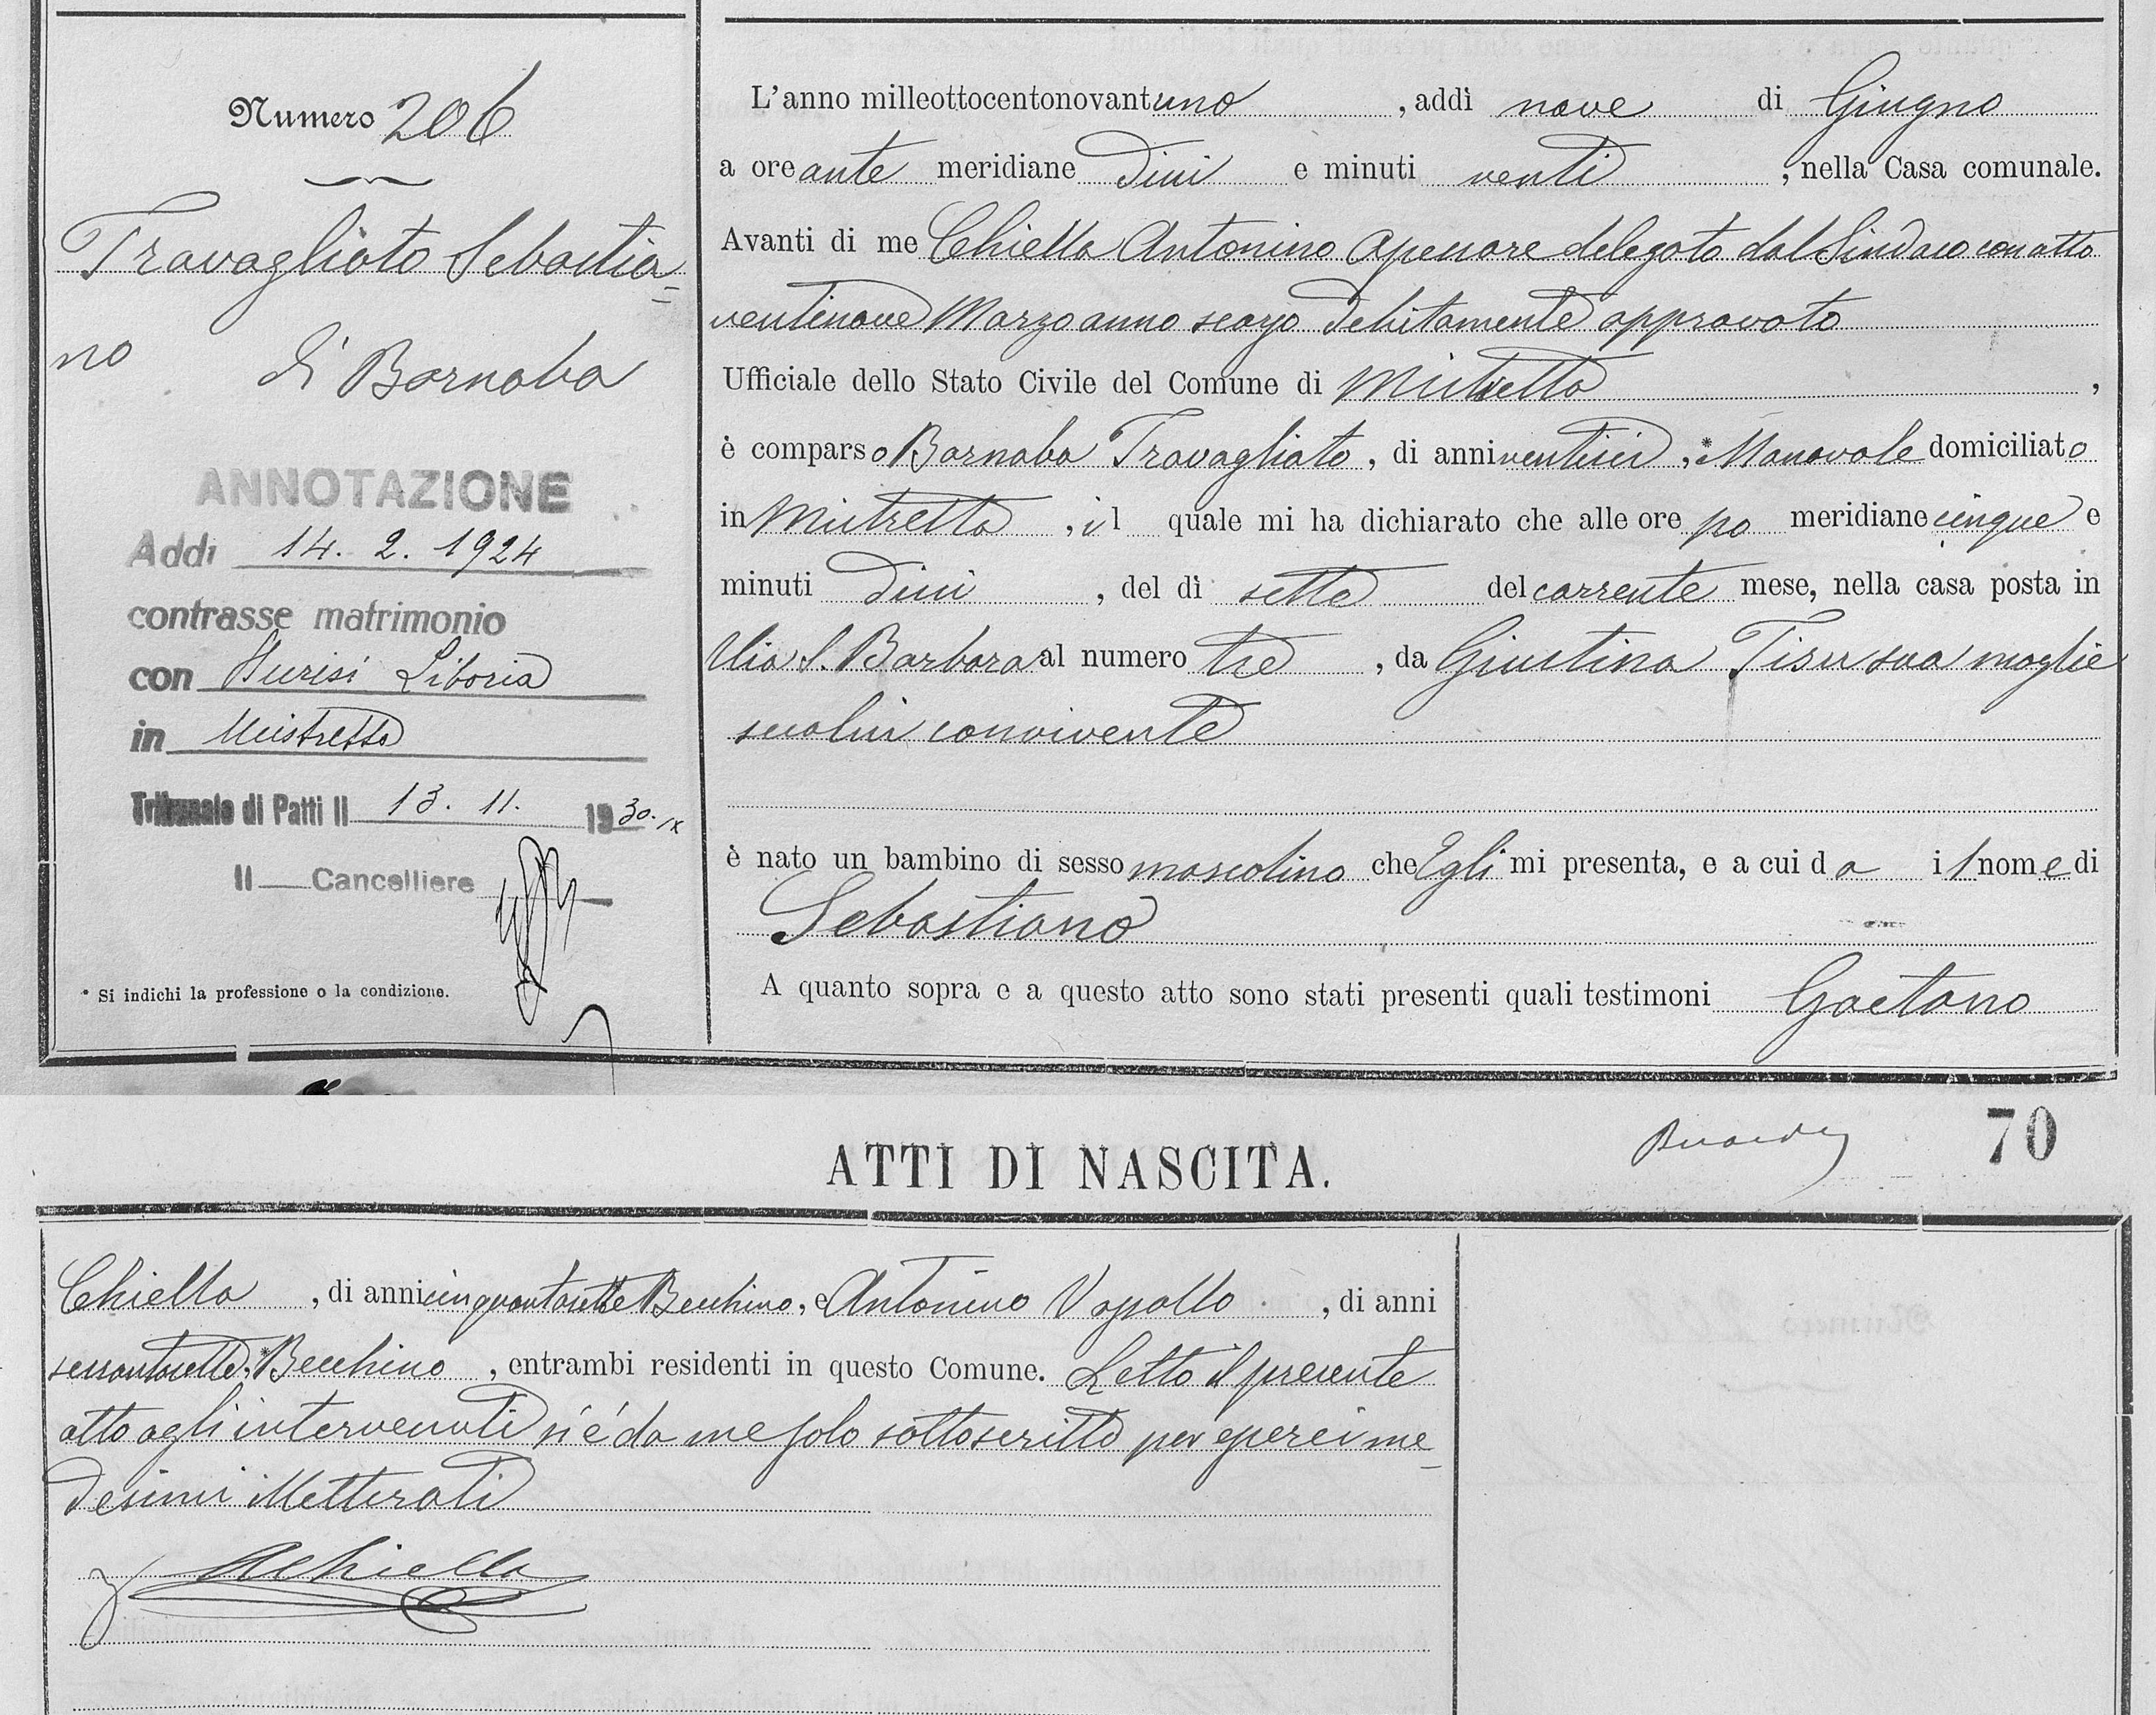 Numero 206
Travagliato Sebastia=
no di Barnaba
ANNOTAZIONE
Addì 14. 2. 1924
contrasse matrimonio
con Liboria
in Mistretta
Tribunale di Patti lì 13. 11. 1930. IX
Il Cancelliere
* Si indichi la professione o la condizione.
L'anno milleottocentonovantuno, addì nove di Giugno
a ore ante meridiane dieci e minuti venti, nella Casa comunale.
Avanti di me Chiella Antonino Assessore delegato dal Sindaco con atto
ventinove Marzo anno scorso debitamente approvato
Ufficiale dello Stato Civile del Comune di Mistretta,
è comparso Barnaba Travagliato, di anni ventisei, *Manovale domiciliato
in Mistretta, il quale mi ha dichiarato che alle ore po meridiane cinque e
minuti dieci, del dì sette del corrente mese, nella casa posta in
Via S. Barbara al numero tre, da Giustina Tisu sua moglie
secolui convivente
è nato un bambino di sesso mascolino che Egli mi presenta, e a cui da il nome di
Sebastiano
A quanto sopra e a questo atto sono stati presenti quali testimoni Gaetano
70
ATTI DI NASCITA.
Chiella, di anni cinquantasette Becchino, e Antonino Vapollo, di anni
sessantasette, *Becchino, entrambi residenti in questo Comune. Letto il presente
atto agli intervenuti si è da me solo sottoscritto per essere i me=
desimi illetterati
AChiella